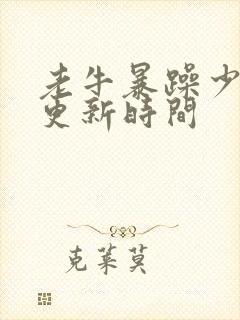 老牛暴躁少
更新時間
克萊莫